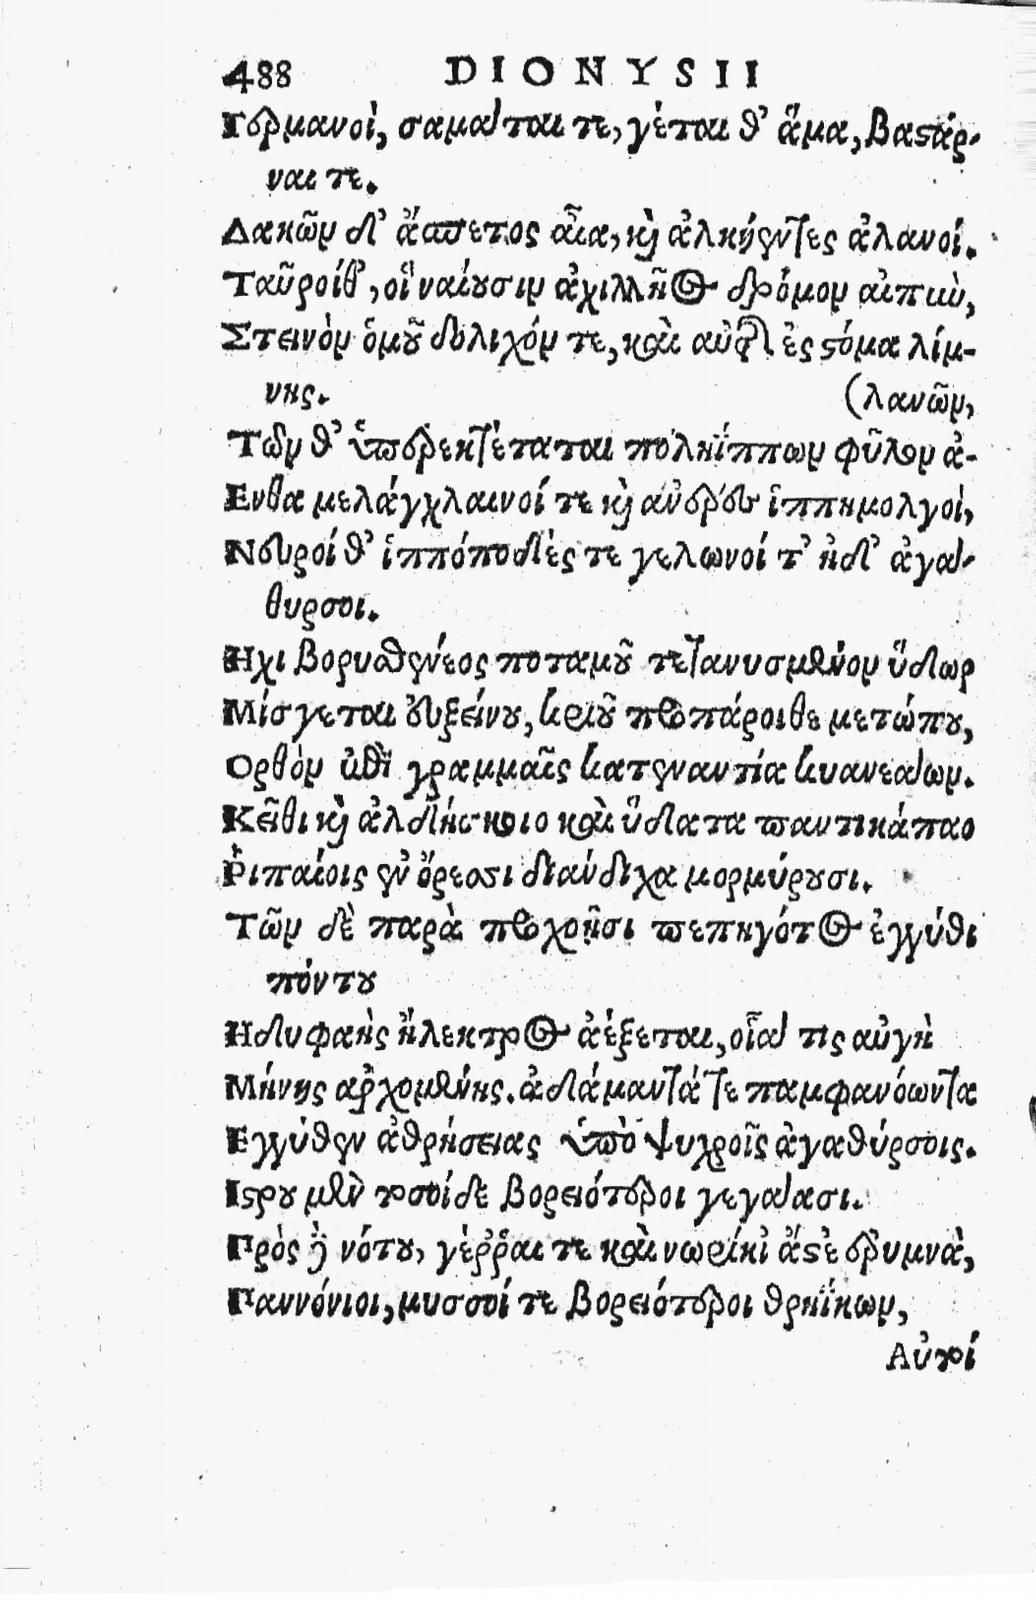 488 DIONYSII
Γερμανοὶ, σαμάται τε, γέται θ' ἅμα, Βαστάρ-
ναι τε.
Δακῶν δ' ἄσπετος αἶα, καὶ ἀλκήεντες ἀλανοί.
Ταῦροίθ', οἳ ναίουσιν ἀχιλλῆος δρόμον αἰπὺν,
Στεινὸν ὁμοῦ δολιχόν τε, καὶ αὐτῆς ἐς στόμα λίμ-
νης. (λανῶν,
Τῶν θ' ὑπερεκτέταται πολυΐππων φῦλον ἀ-
Ενθα μελάγχλαινοί τε καὶ ἀνδρες ἱππημολγοὶ,
Νευροί θ' ἱππόποδές τε γελωνοί τ' ἠδ' ἀγα-
θυρσοι.
Ηχι βορυσθένεος ποταμοῦ τετανυσμένον ὕδωρ
Μίσγεται ὀυξείνου, κριοῦ προπάροιθε μετώπου,
Ορθὸν ἐπὶ γραμμαῖς κατεναντία κυανεάων.
Κεῖθι καὶ ἀλδήσκοιο καὶ ὕδατα παντικάπαο
Ῥιπαίοις ἐν ὄρεσσι διάνδιχα μορμύρουσι.
Τῶν δὲ παρὰ προχοῇσι πεπηγότος ἐγγύθι
πόντου
Ηδυφαὴς ἤλεκτρος ἀέξεται, οἷά τις αὐγὴ
Μήνης ἀρχομένης. ἀδάμαντά τε παμφανόωντα
Εγγύθεν ἀθρήσειας ὑπὸ ψυχροῖς ἀγαθύρσοις.
Ιστρου μὲν τοσοίδε βορειότεροι γεγάασι.
Πρὸς δὲ νότου, γέῤῥαι τε καὶ νωρίκἰ ἄστε ἐρυμνὰ,
Παννόνιοι, μυσσοί τε βορειότεροι θρηΐκων,
Αὐτοί